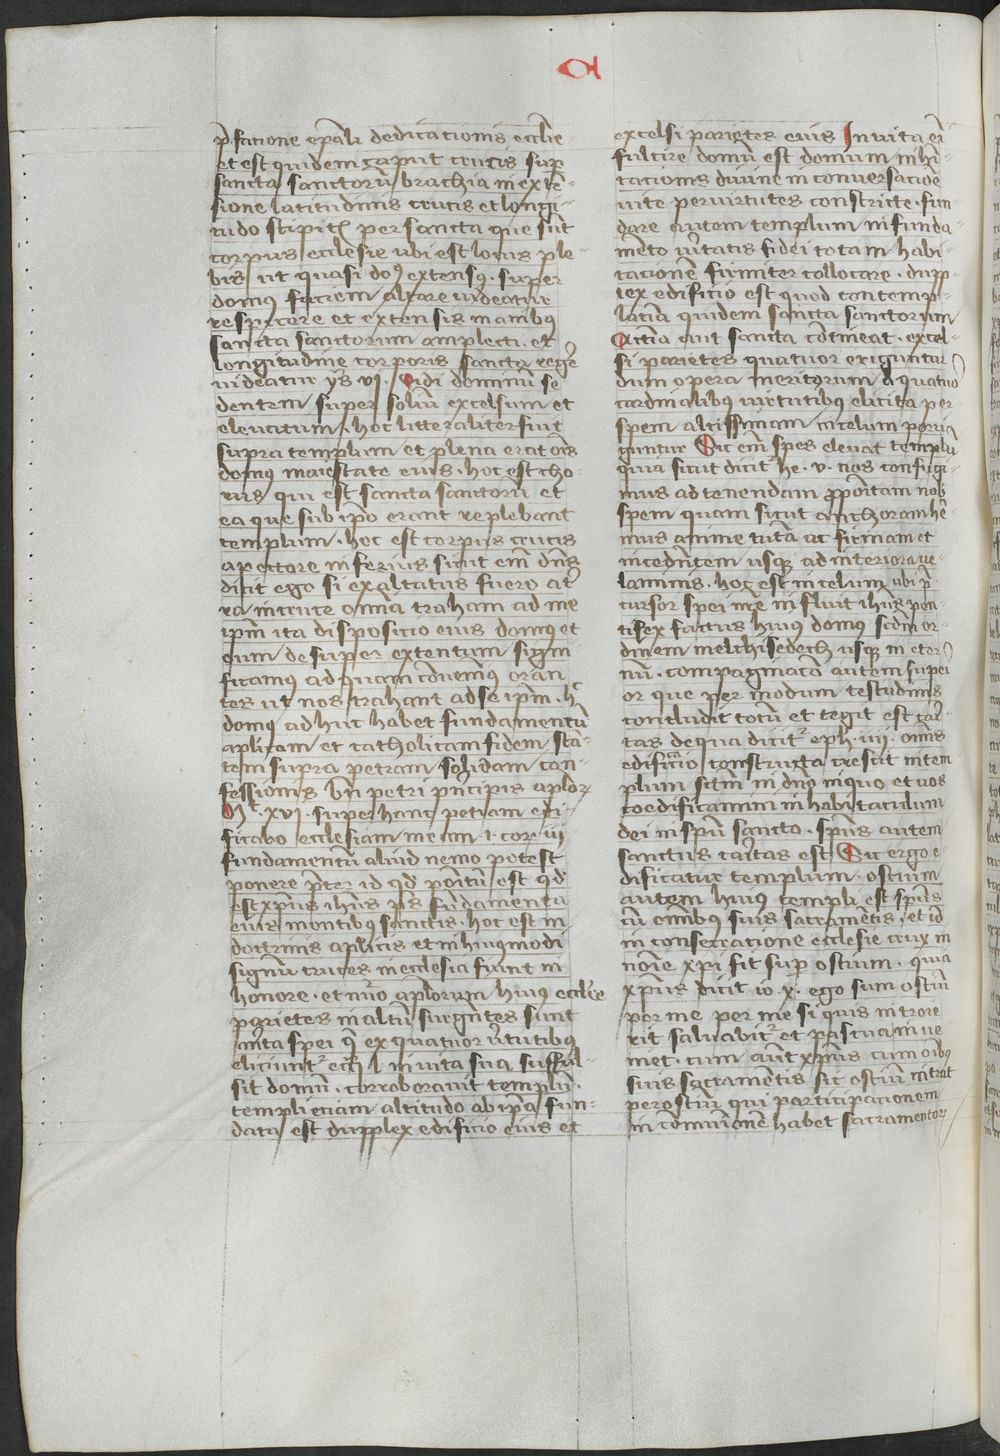 p̄fatione epāli dedicationis eccl̄ie
et est quidem caput crucis sup
sancta sanctorū brachia in extē-
sione latitudinis crucis et longi-
tudo stipitꝭ per sancta que sūt
corpus ecclesie ubi est locus ple-
bis ut quasi doꝰ extensꝰ. super
domus faciem altare videatur
respicere et extensis manibus
sancta sanctorum amplecti. et
longitudine corporis sancta regē
videatur ys vj. Vidi dominū se
dentem super soliū excelsum et
eleuatum. hoc litteraliter fuit
supra templum et plena erat oīs
domus maiestate eius. hoc est cho-
rus qui est sancta sanctorū et
ea que sub ip̄o erant replebant
templum. hoc est corpus crucis
a pectore inferius sicut em̄ dn̄s
dicit ego si exaltatus fuero a tr̄
ra in cruce om̄ia traham ad me
ip̄m ita dispositio eius domus et
eum desuper extentum signi
ficamus ad quam cōuenimꝰ oran
tes ut nos trahant ad se ip̄m. hͨ
domus adhuc habet fundamentū
ap̄licam et catholicam fidem stā-
tem supra petram solidam con-
fessionis bt̄i petri p̄ncipis ap̄lorꝝ
Mt. xvj. super hanc petram edi-
ficabo ecclesiam meam i. cor. iij
fundamentū aliud nemo potest
ponere p̄ter id qd̄ pōitū est qd̄
est xp̄us ih̄us p̄s fūdamenta
eius montibus sanctis. hoc est in
doctrinis ap̄licis et in huiusmodi
signū cruces in ecclesia fiunt in
honore. et nūo ap̄lorum huiꝰ eccl̄ie
parietes in altū surgētes sunt
mīta spei q̄ ex quatuor v̄tutibus
eliciunt² ecci l in vita sua suffūl-
sit domū. corroborauit templū.
templi etiam altitudo ab ip̄a fun-
data est dupplex edificio eius et
excelsi parietes eius In vita em̄
fulcire domū est domum inhī-
tacionis diuine in conuersacōe
vite per virtutes constricte. fun-
dare autem templum in funda-
mēto v̄itatis fidei totam habi-
tacionē firmiter collocare. dupp-
lex edificio est quod contemp-
latiuā quidem sancta sanctorum
Actiua aut sancta cōtineat. excel-
si parietes quatuor eriguntur
dum opera meritorum a quatuoͬ
cardinalibus virtutibꝰ elicita per
spem altissimam in celum porri
guntur Sic em̄ spes eleuat templū
quia sicut dicit² he. v. nos confugi-
mus ad tenendam p̄pōitam nob̄
spem quam sicut anchoram hē-
mus anime tutā ac firmam et
incedētem usqꝫ ad interiora ve-
laminis. hoc est in celum ubi p̄-
cursor spei nr̄e influit ih̄us pon-
tifex factus huius domus scd̄m or-
dinem melchisedech usqꝫ in eterͬ
nū. compaginacō autem superi
or que per modum testudinis
concludit totū et tegit est cari-
tas de qua dicit² eph. iiij. omnis
edificacio constructa crescit in tem
plum sctm̄ in dn̄o in quo et vos
coedificamini in habitaculum
dei in sp̄u sancto. sp̄us autem
sanctus caritas est Sic ergo e-
dificatur templum. ostium
autem huius templi est sp̄us
cū om̄ibus suis sacramētis. et id
in consecracione ecclesie crux in
noīe xp̄i fit sup ostium. quia
xp̄us dicit io x. ego sum ostiū
por me per me si quis introie
rit saluabit² et pascua inue
niet. cum aūt xp̄us cum oībus
suis sacramētis sic ostiū intrat
per ostiū qui participacionem
in comunionē habet sacramentorꝝ